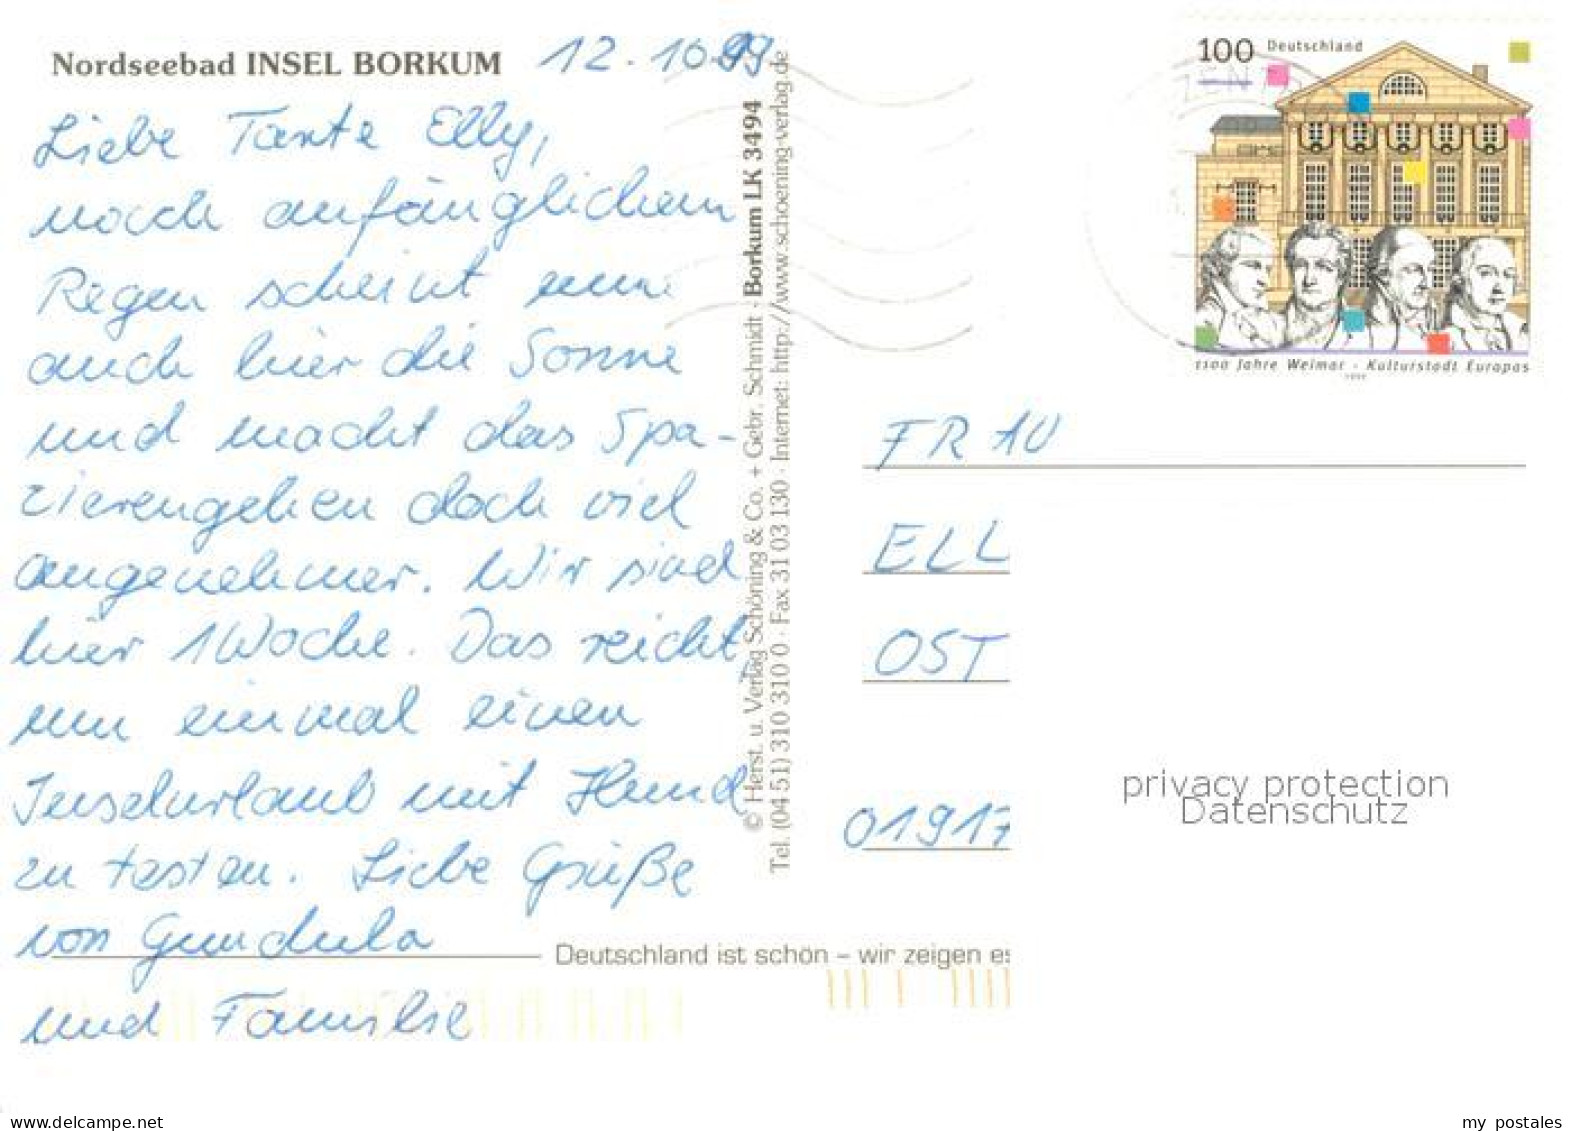 Nordseebad INSEL BORKUM
12.10.99
Liebe Tante Elly,
nach anfänglichem
Regen scheint nun
auch hier die Sonne
und macht das Spa-
zierengehen doch viel
angenehmer. Wir sind
hier 1 Woche. Das reicht,
um einmal einen
Inselurlaub mit Hund
zu testen. Liebe Grüße
von Gundula
und Familie
© Herst. u. Verlag Schöning & Co. + Gebr. Schmidt · Borkum LK 3494
Tel. (04 51) 310 310 0 · Fax 31 03 130 · Internet: http://www.schoening-verlag.de
Deutschland ist schön – wir zeigen es
100 Deutschland
1100 Jahre Weimar - Kulturstadt Europas
1999
FRAU
ELL
OST
01917
privacy protection
Datenschutz
my_postales